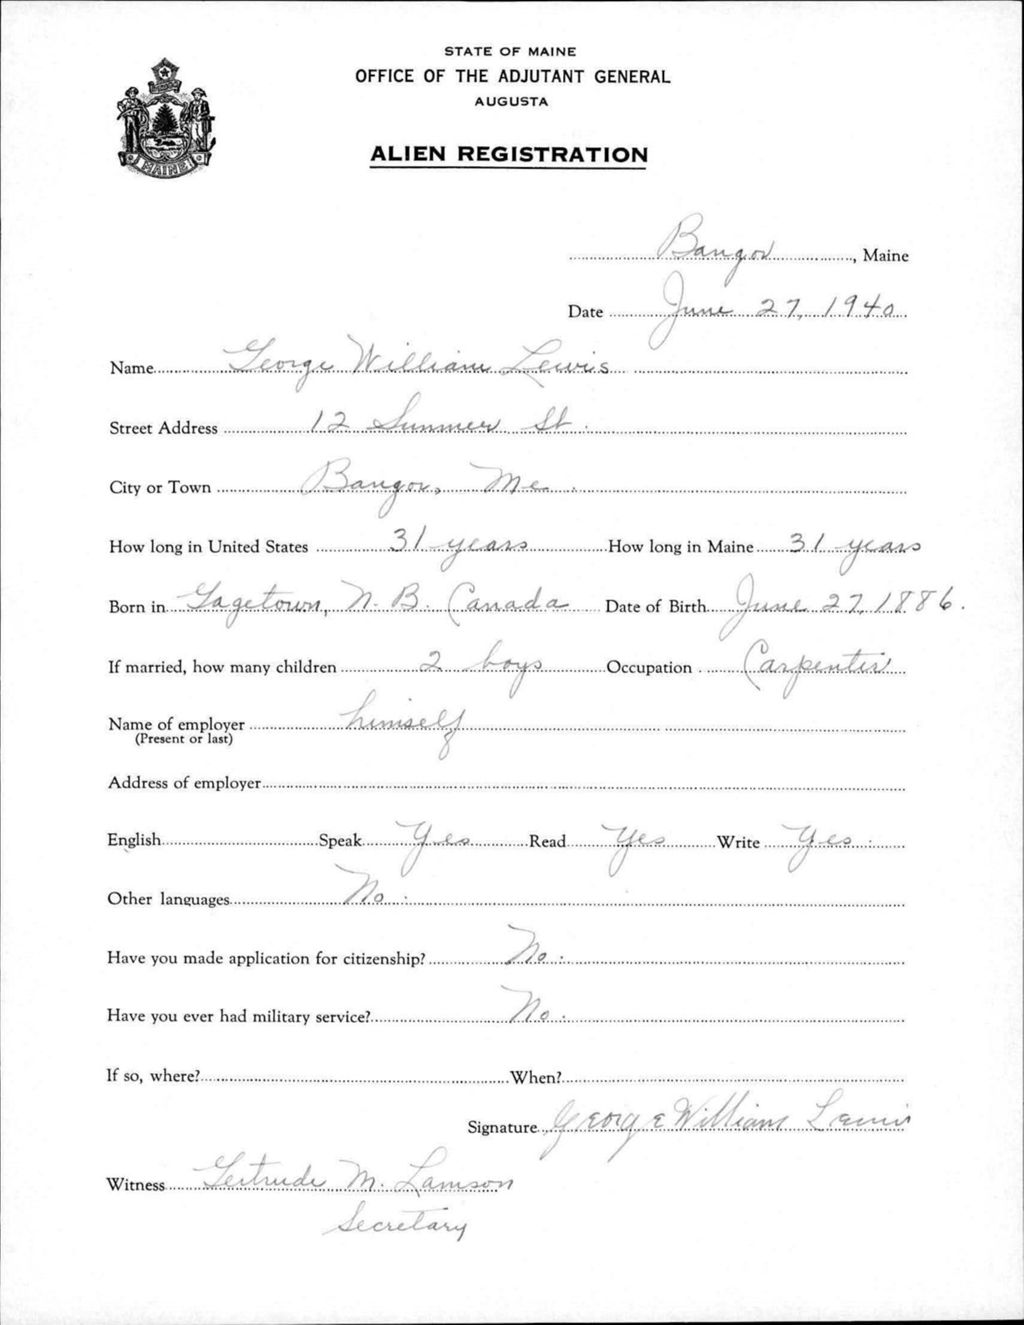 STATE OF MAINE
OFFICE OF THE ADJUTANT GENERAL
AUGUSTA
ALIEN REGISTRATION
MAINE
Bangor, Maine
Date June 27, 1940
Name George William Lewis
Street Address 12 Summer St.
City or Town Bangor, Me.
How long in United States 31 years How long in Maine 31 years
Born in Gagetown, N. B. Canada Date of Birth June 27, 1886.
If married, how many children 2 boys Occupation Carpenter
Name of employer himself
(Present or last)
Address of employer
English Speak Yes Read Yes Write Yes.
Other languages No.
Have you made application for citizenship? No.
Have you ever had military service? No.
If so, where? When?
Signature George William Lewis
Witness Gertrude M. Lamson
Secretary